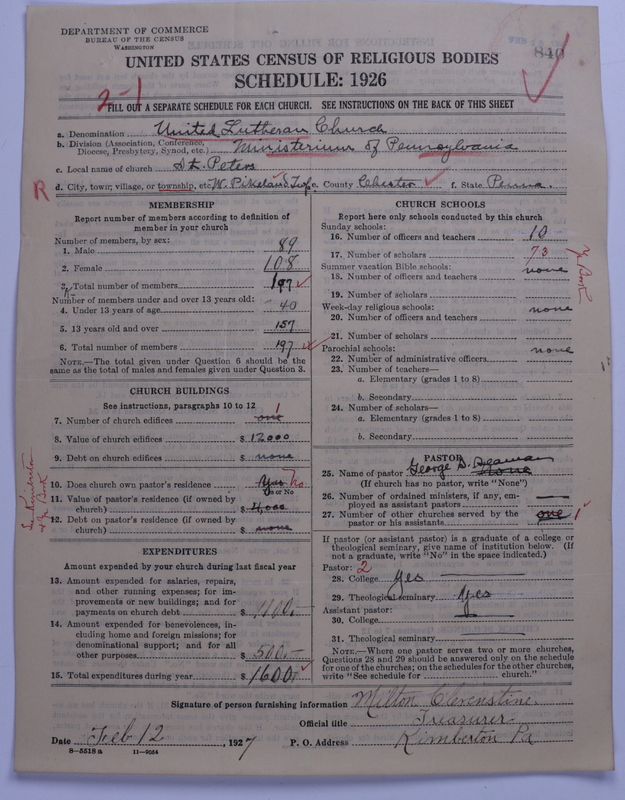 DEPARTMENT OF COMMERCE
BUREAU OF THE CENSUS
WASHINGTON
840
UNITED STATES CENSUS OF RELIGIOUS BODIES
SCHEDULE: 1926
2-1
FILL OUT A SEPARATE SCHEDULE FOR EACH CHURCH. SEE INSTRUCTIONS ON THE BACK OF THIS SHEET
a. Denomination United Lutheran Church
b. Division (Association, Conference, Diocese, Presbytery, Synod, etc.) Ministerium of Pennsylvania
c. Local name of church St. Peters
R
d. City, town, village, or township, etc. W. Pikeland Twp. e. County Chester f. State Penna.
MEMBERSHIP
Report number of members according to definition of
member in your church
Number of members, by sex:
1. Male 89
2. Female 108
3. Total number of members 197
Number of members under and over 13 years old:
4. Under 13 years of age 40
5. 13 years old and over 157
6. Total number of members 197
NOTE.—The total given under Question 6 should be the
same as the total of males and females given under Question 3.
CHURCH BUILDINGS
See instructions, paragraphs 10 to 12
7. Number of church edifices one 1
8. Value of church edifices $ 12000
9. Debt on church edifices $ none
10. Does church own pastor's residence Yes No
Yes or No
11. Value of pastor's residence (if owned by
church) $ 4,000
12. Debt on pastor's residence (if owned by
church) $ none
See Kimberton
Yr Book
EXPENDITURES
Amount expended by your church during last fiscal year
13. Amount expended for salaries, repairs,
and other running expenses; for im-
provements or new buildings; and for
payments on church debt $ 1100.—
14. Amount expended for benevolences, in-
cluding home and foreign missions; for
denominational support; and for all
other purposes $ 500.—
15. Total expenditures during year $ 1600.—
CHURCH SCHOOLS
Report here only schools conducted by this church
Sunday schools:
16. Number of officers and teachers 10
17. Number of scholars 73
Yr Book
Summer vacation Bible schools:
18. Number of officers and teachers none
19. Number of scholars
Week-day religious schools:
20. Number of officers and teachers none
21. Number of scholars
Parochial schools:
22. Number of administrative officers none
23. Number of teachers—
a. Elementary (grades 1 to 8)
b. Secondary
24. Number of scholars—
a. Elementary (grades 1 to 8)
b. Secondary
PASTOR
25. Name of pastor George S. Seaman None
(If church has no pastor, write "None")
26. Number of ordained ministers, if any, em-
ployed as assistant pastors —
27. Number of other churches served by the
pastor or his assistants one 1
If pastor (or assistant pastor) is a graduate of a college or
theological seminary, give name of institution below. (If
not a graduate, write "No" in the space indicated.)
Pastor: 2
28. College Yes
29. Theological seminary Yes
Assistant pastor:
30. College
31. Theological seminary
NOTE.—Where one pastor serves two or more churches,
Questions 28 and 29 should be answered only on the schedule
for one of the churches; on the schedules for the other churches,
write "See schedule for church."
Signature of person furnishing information Milton Clevenstine
Official title Treasurer
Date Feb 12, 1927 P. O. Address Kimberton Pa
8-5518 a 11-9054